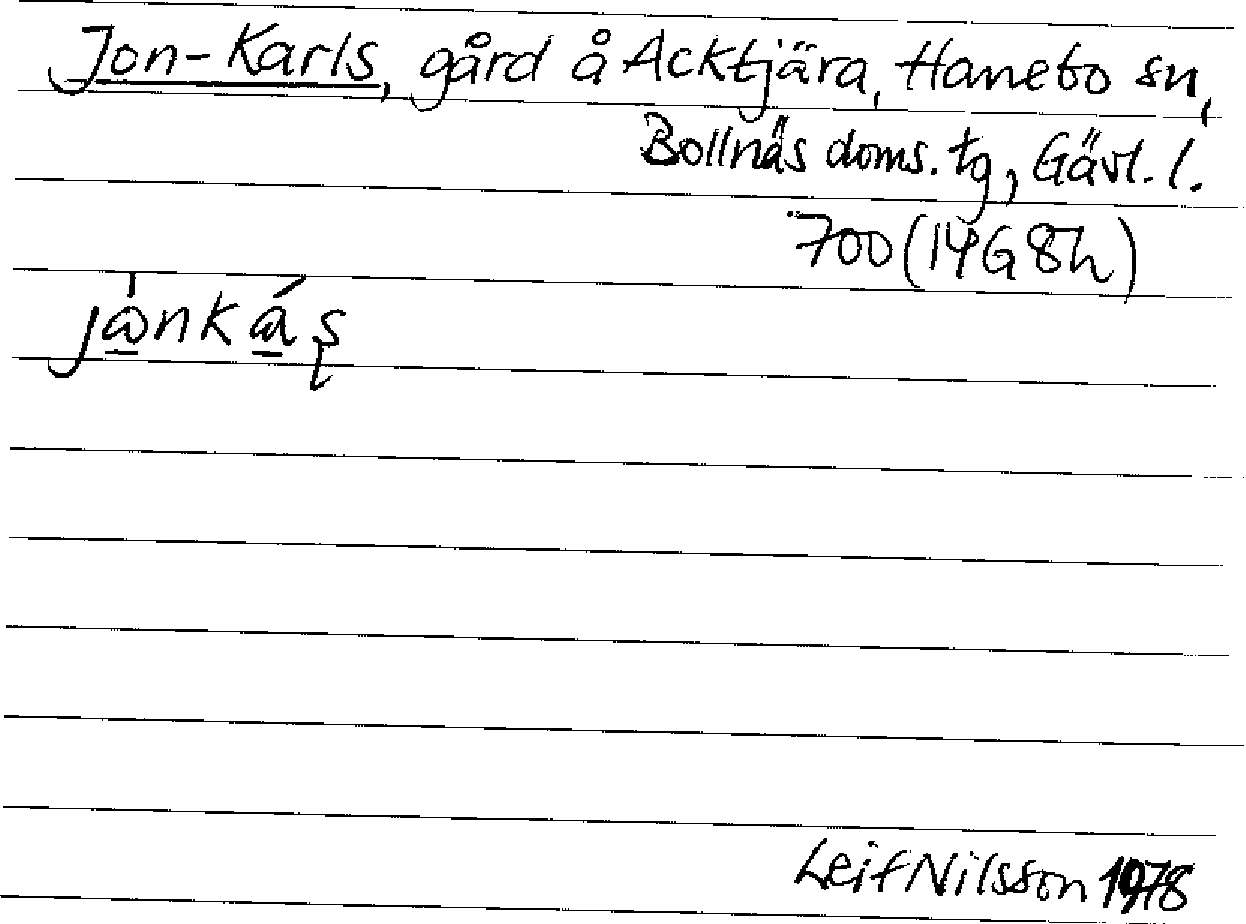 Jon-Karls, gård å Acktjära, Hanebo sn,
Bollnäs doms. tg, Gävl. l.
700 (14G 8h)
Leif Nilsson 1978